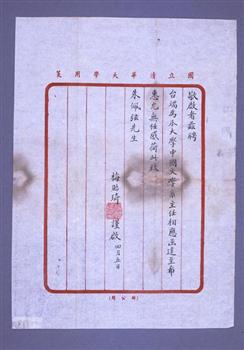 國立清華大學用箋
敬啟者茲聘
台端為本大學中國文學系主任相應函達至希
惠允無任感荷此致
朱佩弦先生
梅貽琦謹啟
四月五日